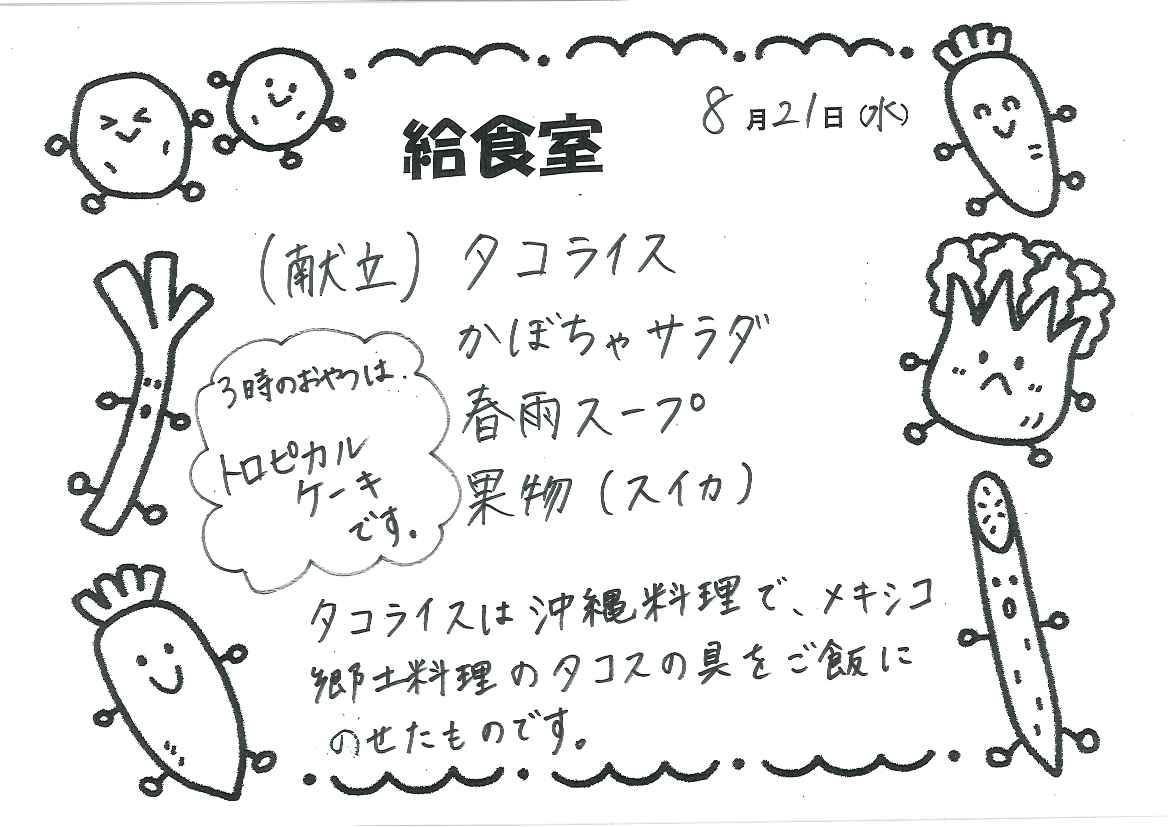 給食室
8月21日(水)
(献立) タコライス
かぼちゃサラダ
春雨スープ
果物 (スイカ)
3時のおやつは.
トロピカル
ケーキ
です。
タコライスは沖縄料理で、メキシコ
郷土料理のタコスの具をご飯に
のせたものです。